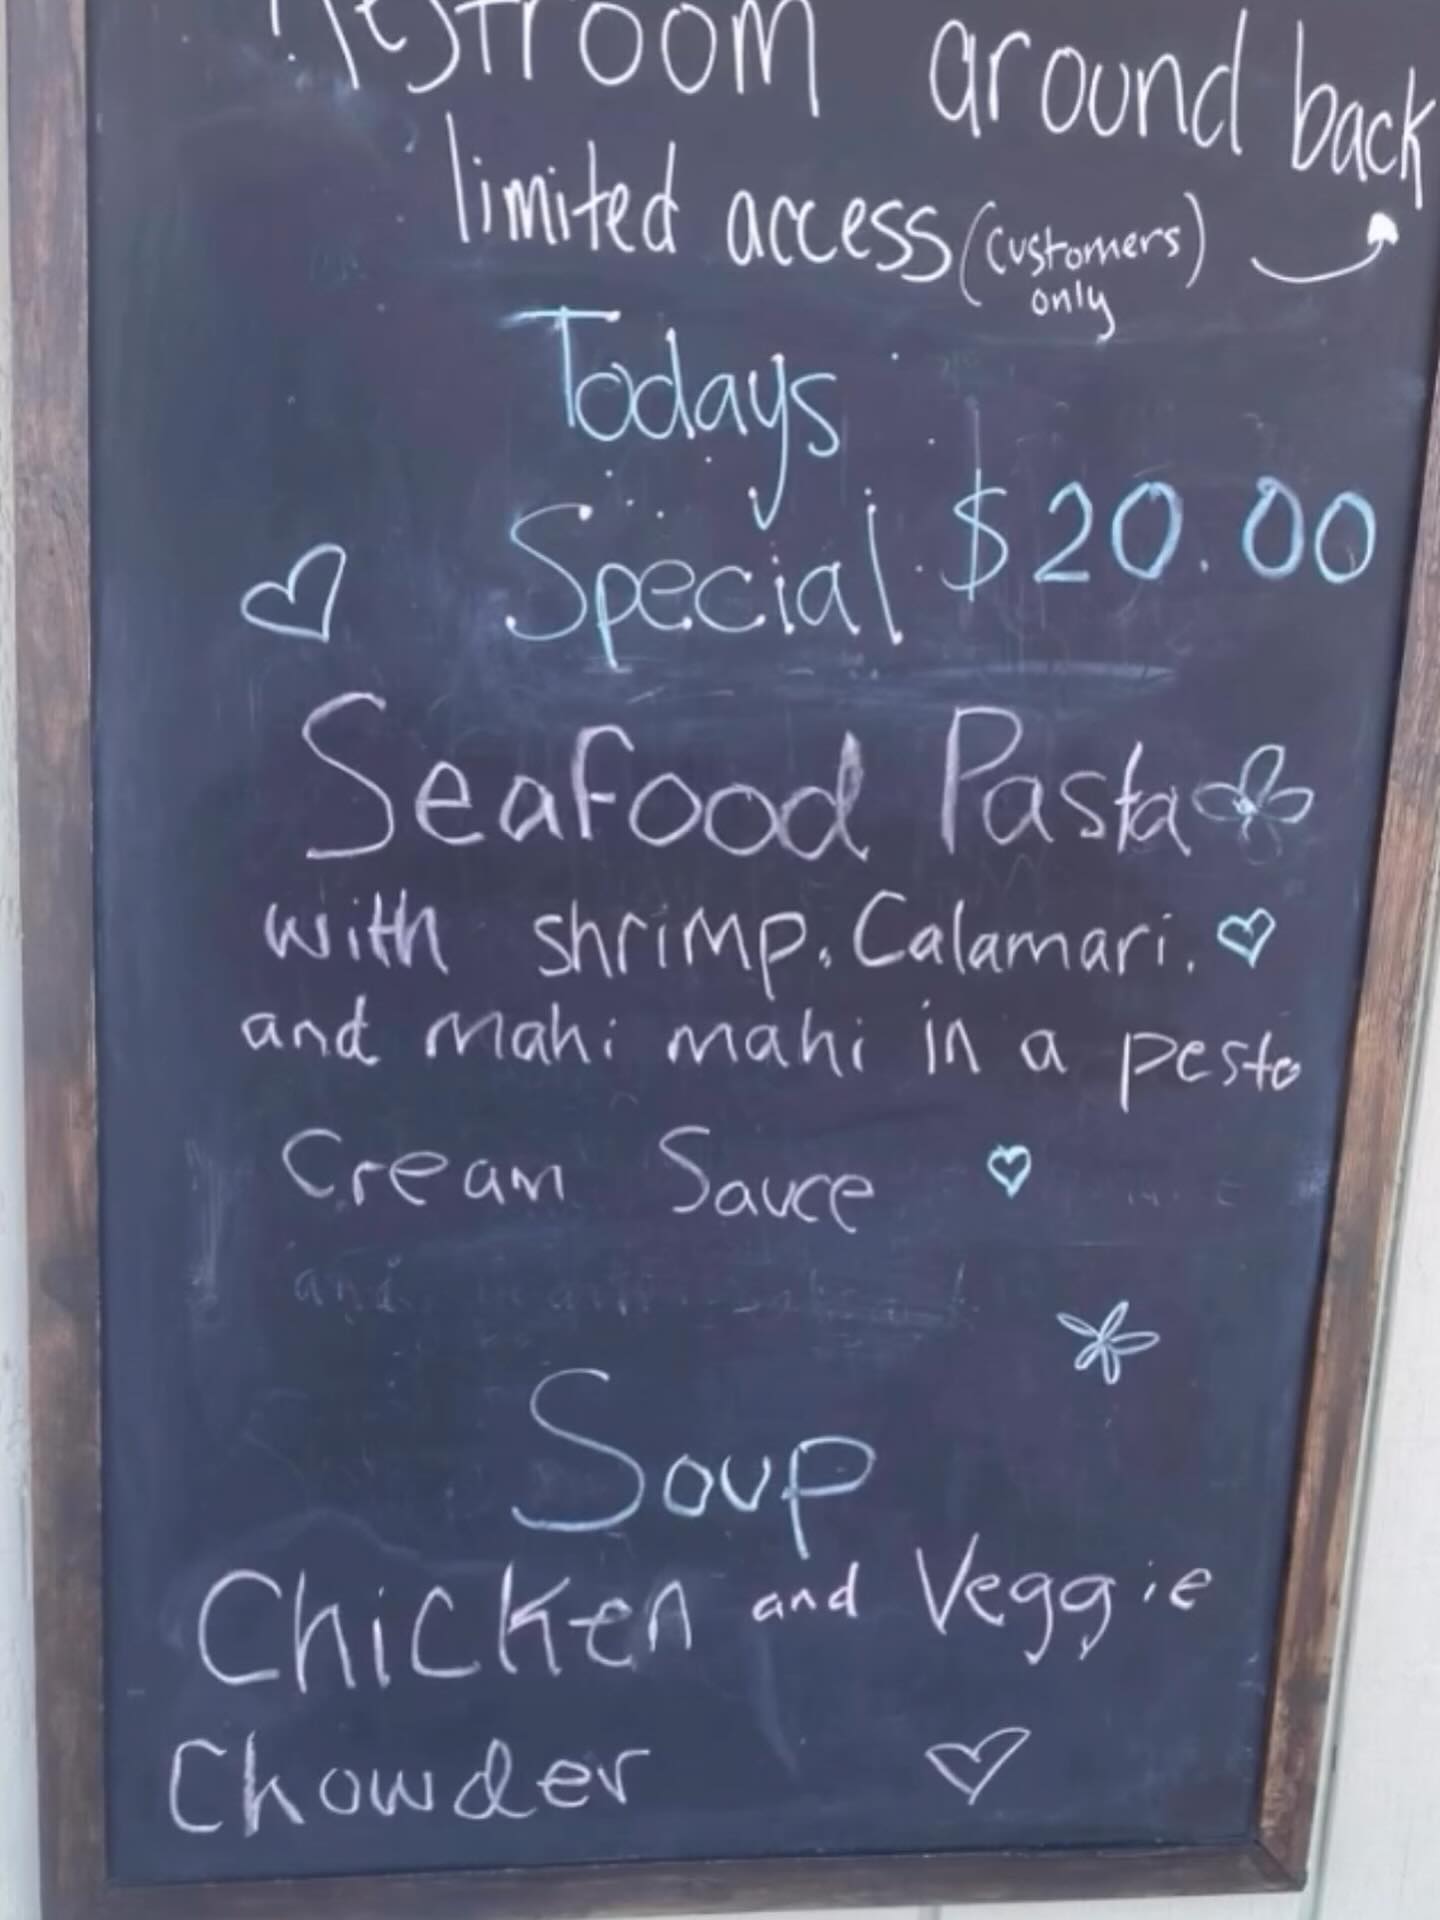 Restroom around back
limited access (customers only)
Todays
Special $20.00
Seafood Pasta
with shrimp. Calamari.
and mahi mahi in a pesto
Cream Sauce
Soup
Chicken and Veggie
Chowder